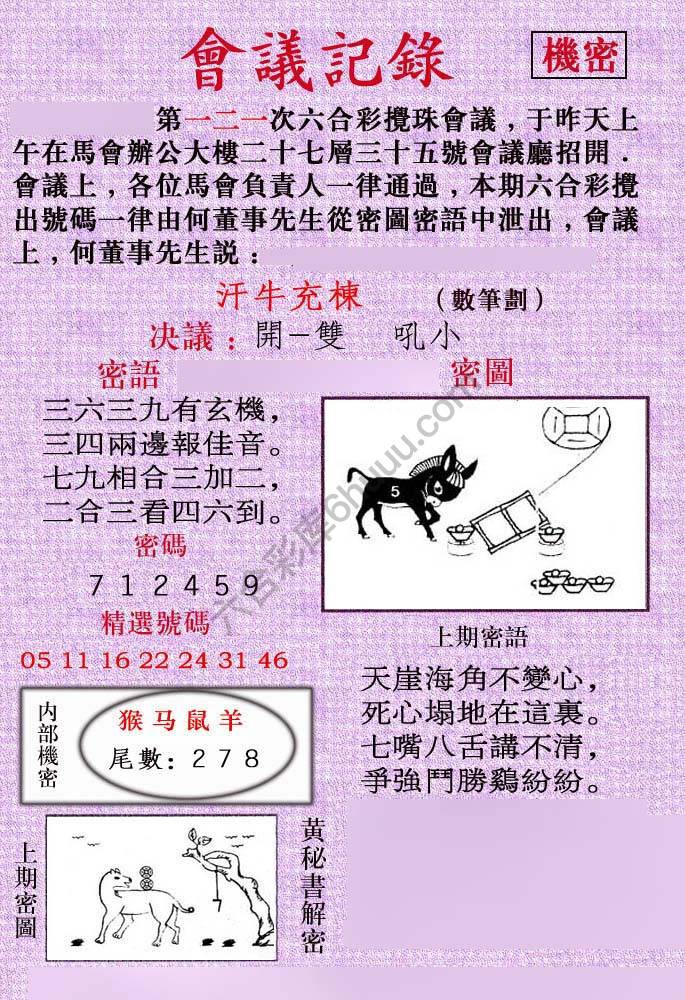 會議記錄
機密
第一二一次六合彩攪珠會議，于昨天上
午在馬會辦公大樓二十七層三十五號會議廳招開．
會議上，各位馬會負責人一律通過，本期六合彩攪
出號碼一律由何董事先生從密圖密語中泄出，會議
上，何董事先生説：
汗牛充棟 （數筆劃）
决議：開－雙 吼小
密語 密圖
三六三九有玄機，
三四兩邊報佳音。
七九相合三加二，
二合三看四六到。
密碼
7 1 2 4 5 9
精選號碼
05 11 16 22 24 31 46
5
六合彩库6hjuuu.com
内部機密
猴马鼠羊
尾數：2 7 8
上期密語
天崖海角不變心，
死心塌地在這裏。
七嘴八舌講不清，
爭強鬥勝鷄紛紛。
上期密圖
7
黃秘書解密